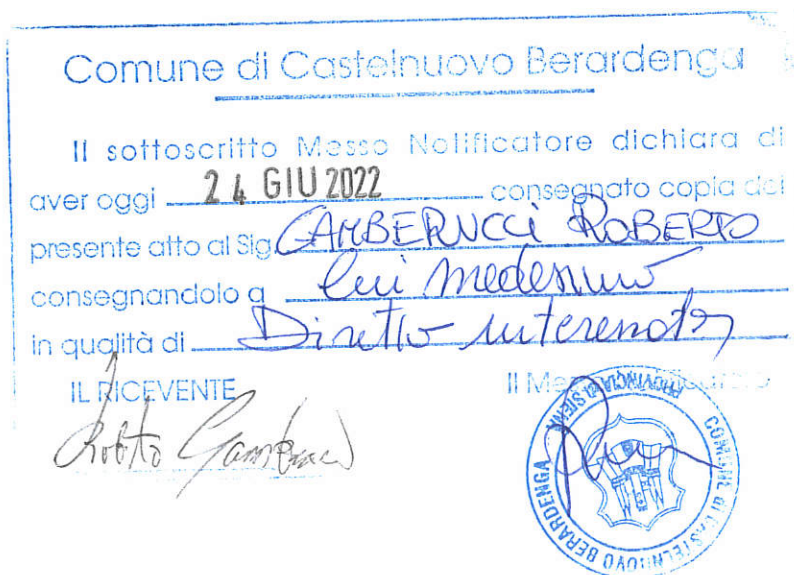 Comune di Castelnuovo Berardenga
Il sottoscritto Messo Notificatore dichiara di
aver oggi 24 GIU 2022 consegnato copia del
presente atto al Sig. GAMBERUCCI ROBERTO
consegnandolo a lui medesimo
in qualità di Diretto interessato
IL RICEVENTE Il Messo Notificatore
Roberto Gamberucci
COMUNE di CASTELNUOVO BERARDENGA
PROVINCIA di SIENA